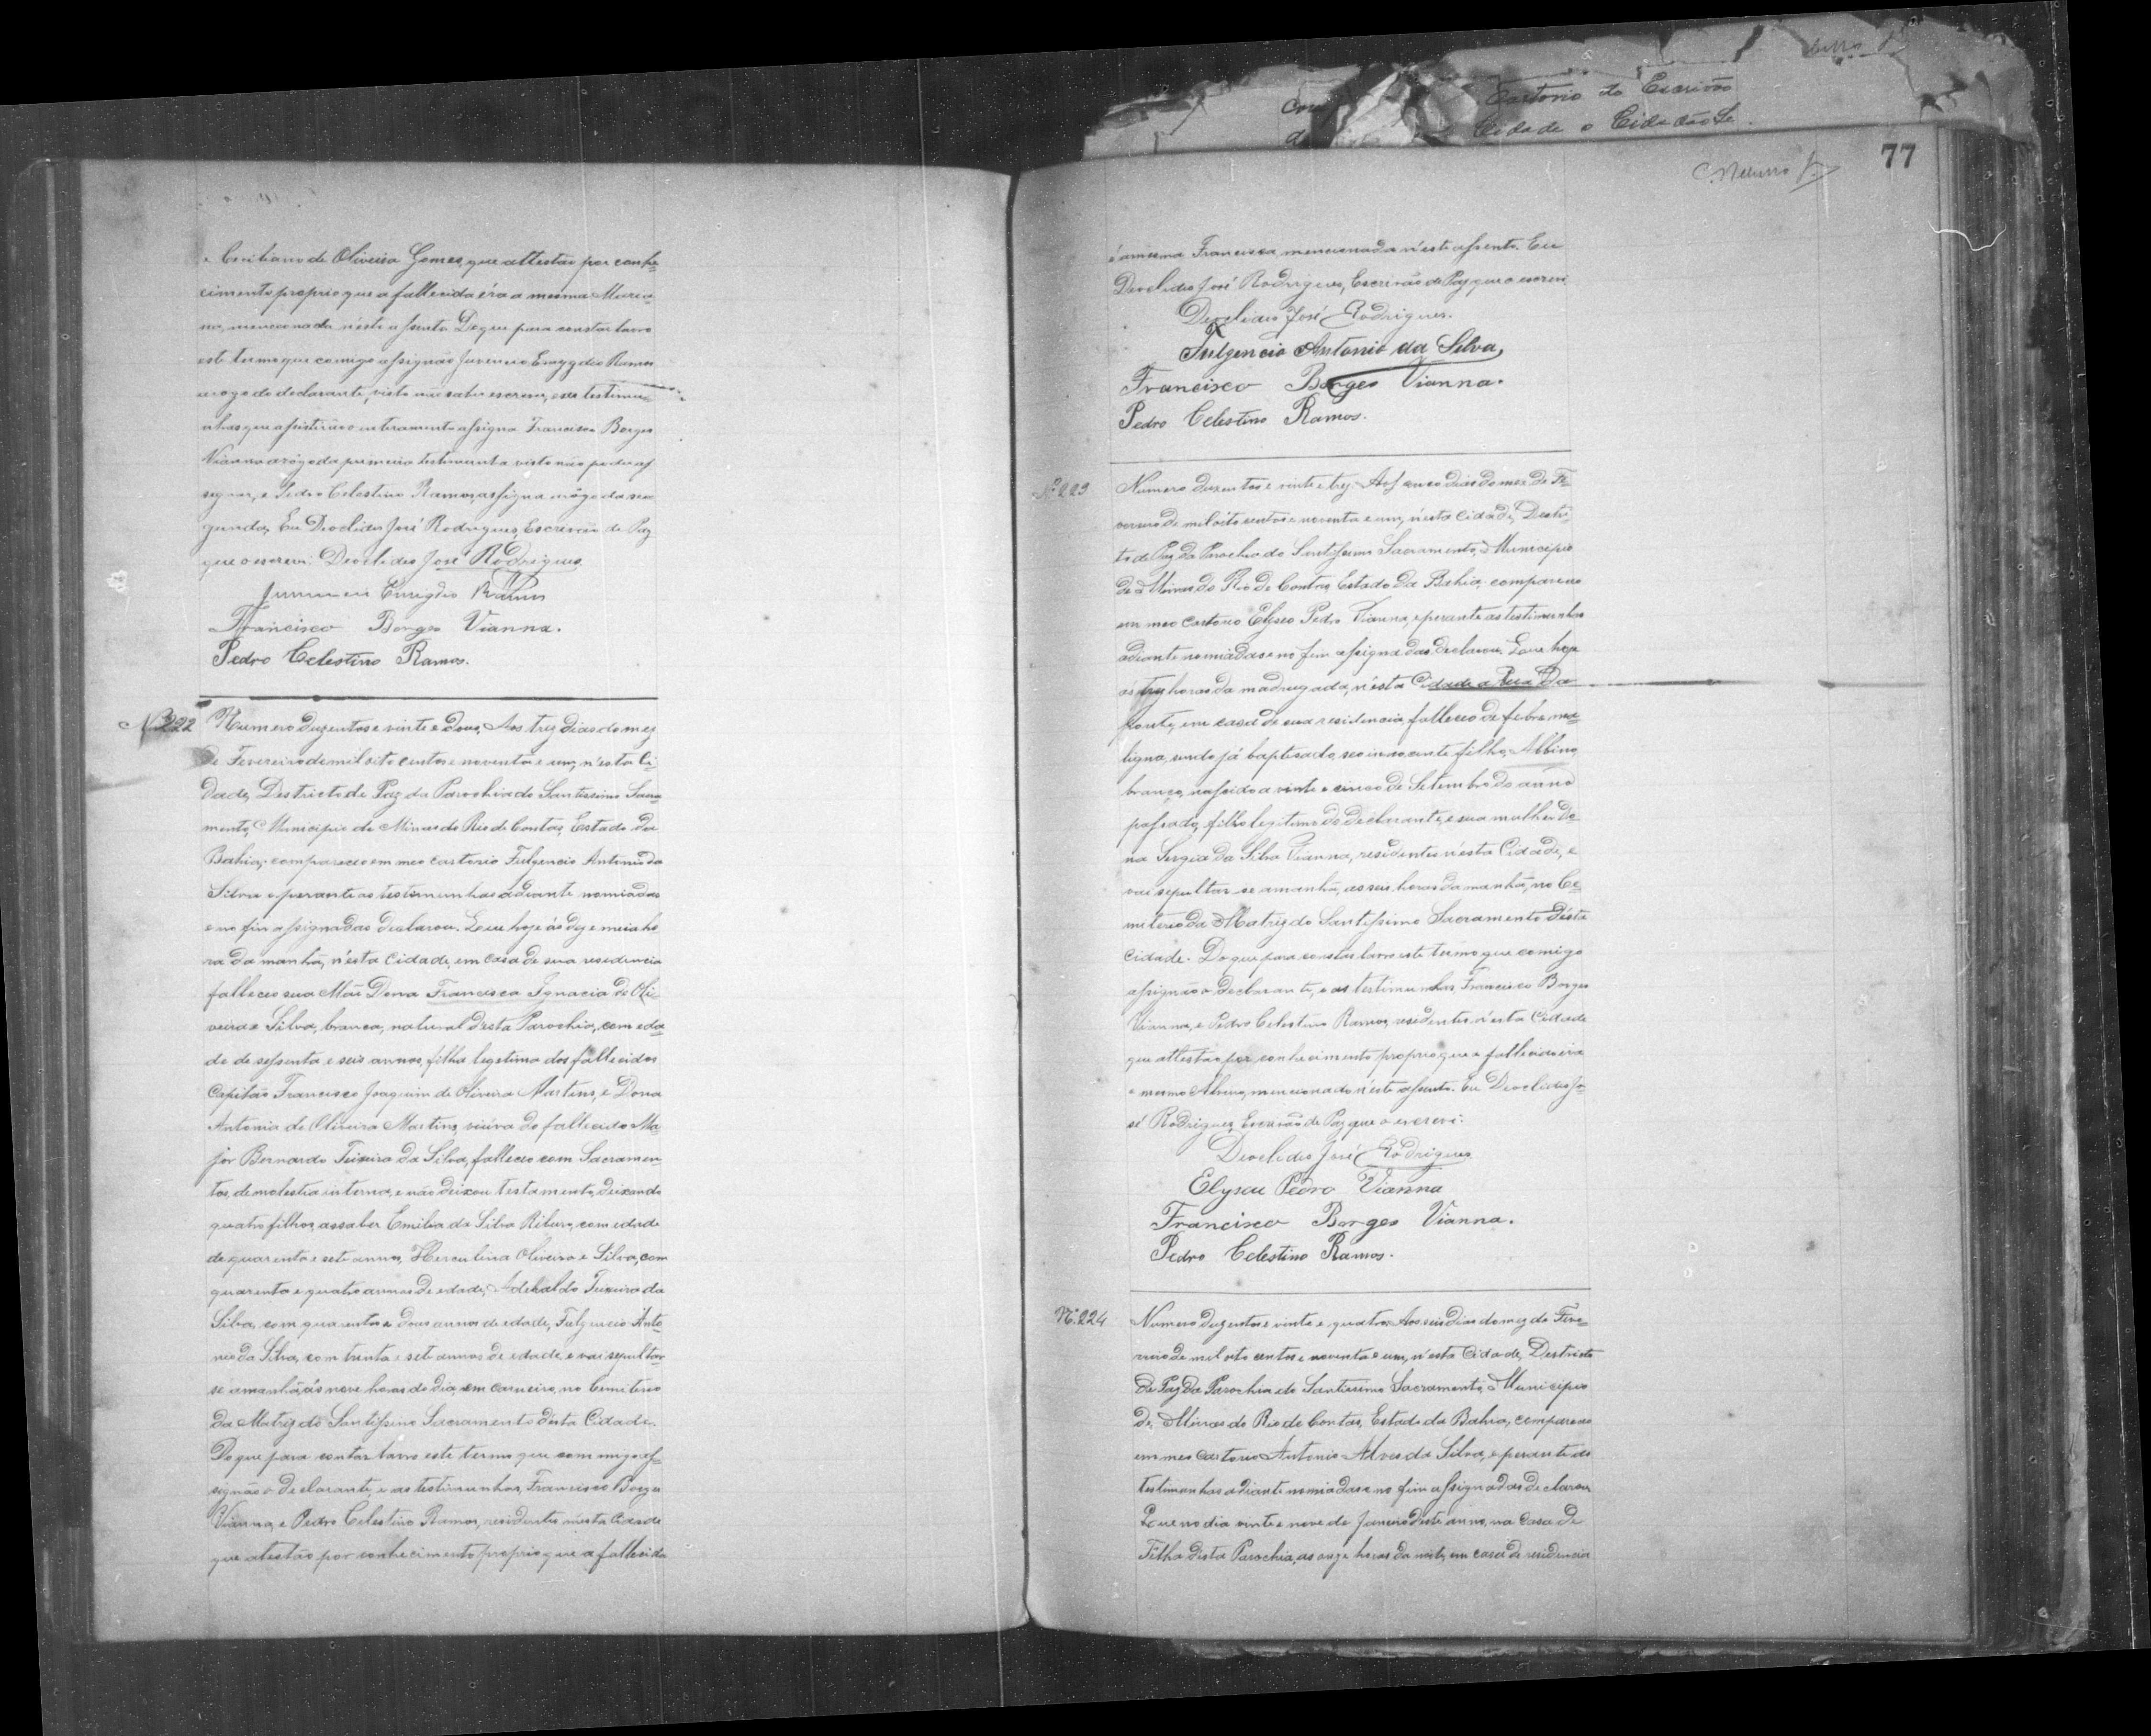 e Cicilianno de Oliveira Gomes, que attestão por conhe-
cimento proprio que a fallecida éra a mesma Maria-
na, mencionada n'este assento. Do que para constar lavro
este termo que comigo assignão Juvencio Emygdio Ramos
a rogo do declarante, visto não saber escrever, e as testemu-
nhas que assistirão inteiramente assigna Francisco Borges
Vianna a rôgo da primeira testimunha visto não poder as
signar, e Pedro Celestino Ramos, assigna a rôgo da se-
gunda, Eu Deoclides José Rodrigues, Escrivão de Paz
que o escrevi. Deoclides José Rodrigues
Juvencio Emigdio Ramos
Francisco Borges Vianna.
Pedro Celestino Ramos.
Nº 222 Numero duzentos e vinte e dous, Aos trez dias do mez
de Fevereiro de mil oito centos e noventa e um, n'esta Ci-
dade, Destricto de Paz da Parochia do Santissimo Sacra-
mento, Municipio de Minas do Rio de Contas, Estado da
Bahia, compareceo em meo cartorio Fulgencio Antonio da
Silva e perante as testimunhas adiante nomiadas
e no fim assignadas declarou. Que hoje ás dez e meia ho
ra da manhã, n'esta Cidade, em casa de sua residencia
falleceo sua Mãi Dona Francisca Ignacia de Oli-
veira e Silva, branca, natural d'esta Parochia, com eda-
de de sessenta e seis annos, filha legitima dos fallecidos
Capitão Francisco Joaquim de Oliveira Martins, e Dona
Antonia de Oliveira Martins, viúva do fallecido Ma-
jor Bernardo Teixeira da Silva, falleceo com Sacramen-
tos, de molestia interna, e não deixou testamento, deixando
quatro filhos, assaber Emilia da Silva Ribeiro, com edade
de quarenta e sete annos, Herculina Oliveira e Silva, com
quarenta e quatro annos de edade, Adehaldo Teixeira da
Silva, com quarenta e dous annos de edade, Fulgencio Anto-
nio da Silva, com trinta e sete annos de edade, e vai sepultar-
se amanhã ás nove horas do dia, em carneiro, no Cemiterio
da Matriz do Santissimo Sacramento d'esta Cidade.
Do que para contar lavro este termo que commigo as-
signão o declarante, e as testimunhas, Francisco Borges
Vianna, e Pedro Celestino Ramos, residentes nesta Cidade
que atestão por conhecimento proprio que a fallecida
77
Cartorio do Escrivão
Cidade o Cidadão
é a mesma Francisca, mencionada n'este assento. Eu
Deoclides José Rodrigues, Escrivão de Paz que o escrevi
Deoclides José Rodrigues.
Fulgencio Antonio da Silva,
Francisco Borges Vianna.
Pedro Celestino Ramos.
Nº 223 Numero duzentos e vinte e trez. Aos cinco dias do mez de Fe-
vereiro de mil oito centos e noventa e um, n'esta Cidade, Destri-
to de Paz da Parochia do Santissimo Sacramento, Municipio
de Minas do Rio de Contas, Estado da Bahia, compareceo
em meo Cartorio Elyseo Pedro Vianna, e perante as testimunhas
adiante nomiadas e no fim assignadas declarou. Que hoje
ás trez horas da madrugada, n'esta Cidade a Rua da
fonte, em casa de sua residencia, falleceo de febre ma-
ligna, sendo já baptisado, seo innocente filho, Albino,
branco, nascido a vinte e cinco de Setembro do anno
passado, filho legitimo do declarante, e sua mulher Do-
na Sergia da Silva Vianna, residentes n'esta Cidade, e
vai sepultar-se amanhã, as seis horas da manhã, no Ce-
miterio da Matriz do Santissimo Sacramento d'ésta
Cidade. Do que para constar lavro este termo que comigo
assignão o declarante, e as testimunhas, Francisco Borges
Vianna, e Pedro Celestino Ramos, residentes n'esta Cidade
que attestão por conhecimento proprio que o fallecido éra
o mesmo Albino, mencionado n'este assento. Eu Deoclides Jo-
sé Rodrigues, Escrivão de Paz que o escrevi.
Deoclides José Rodrigues
Elyseu Pedro Vianna
Francisco Borges Vianna.
Pedro Celestino Ramos.
Nº 224 Numero duzentos e vinte e quatro. Aos seis dias do mez de Feve-
reiro de mil oito centos e noventa e um, n'esta Cidade, Destricto
de Paz da Parochia do Santissimo Sacramento, Municipio
de Minas do Rio de Contas, Estado da Bahia, compareceo
em meo Cartorio Antonio Alves da Silva, e perante as
testimunhas adiante nomiadas e no fim assignadas declarou
Que no dia vinte e nove de Janeiro d'este anno, na Casa de
Telha d'esta Parochia, as onze horas da noite, em casa de residencia